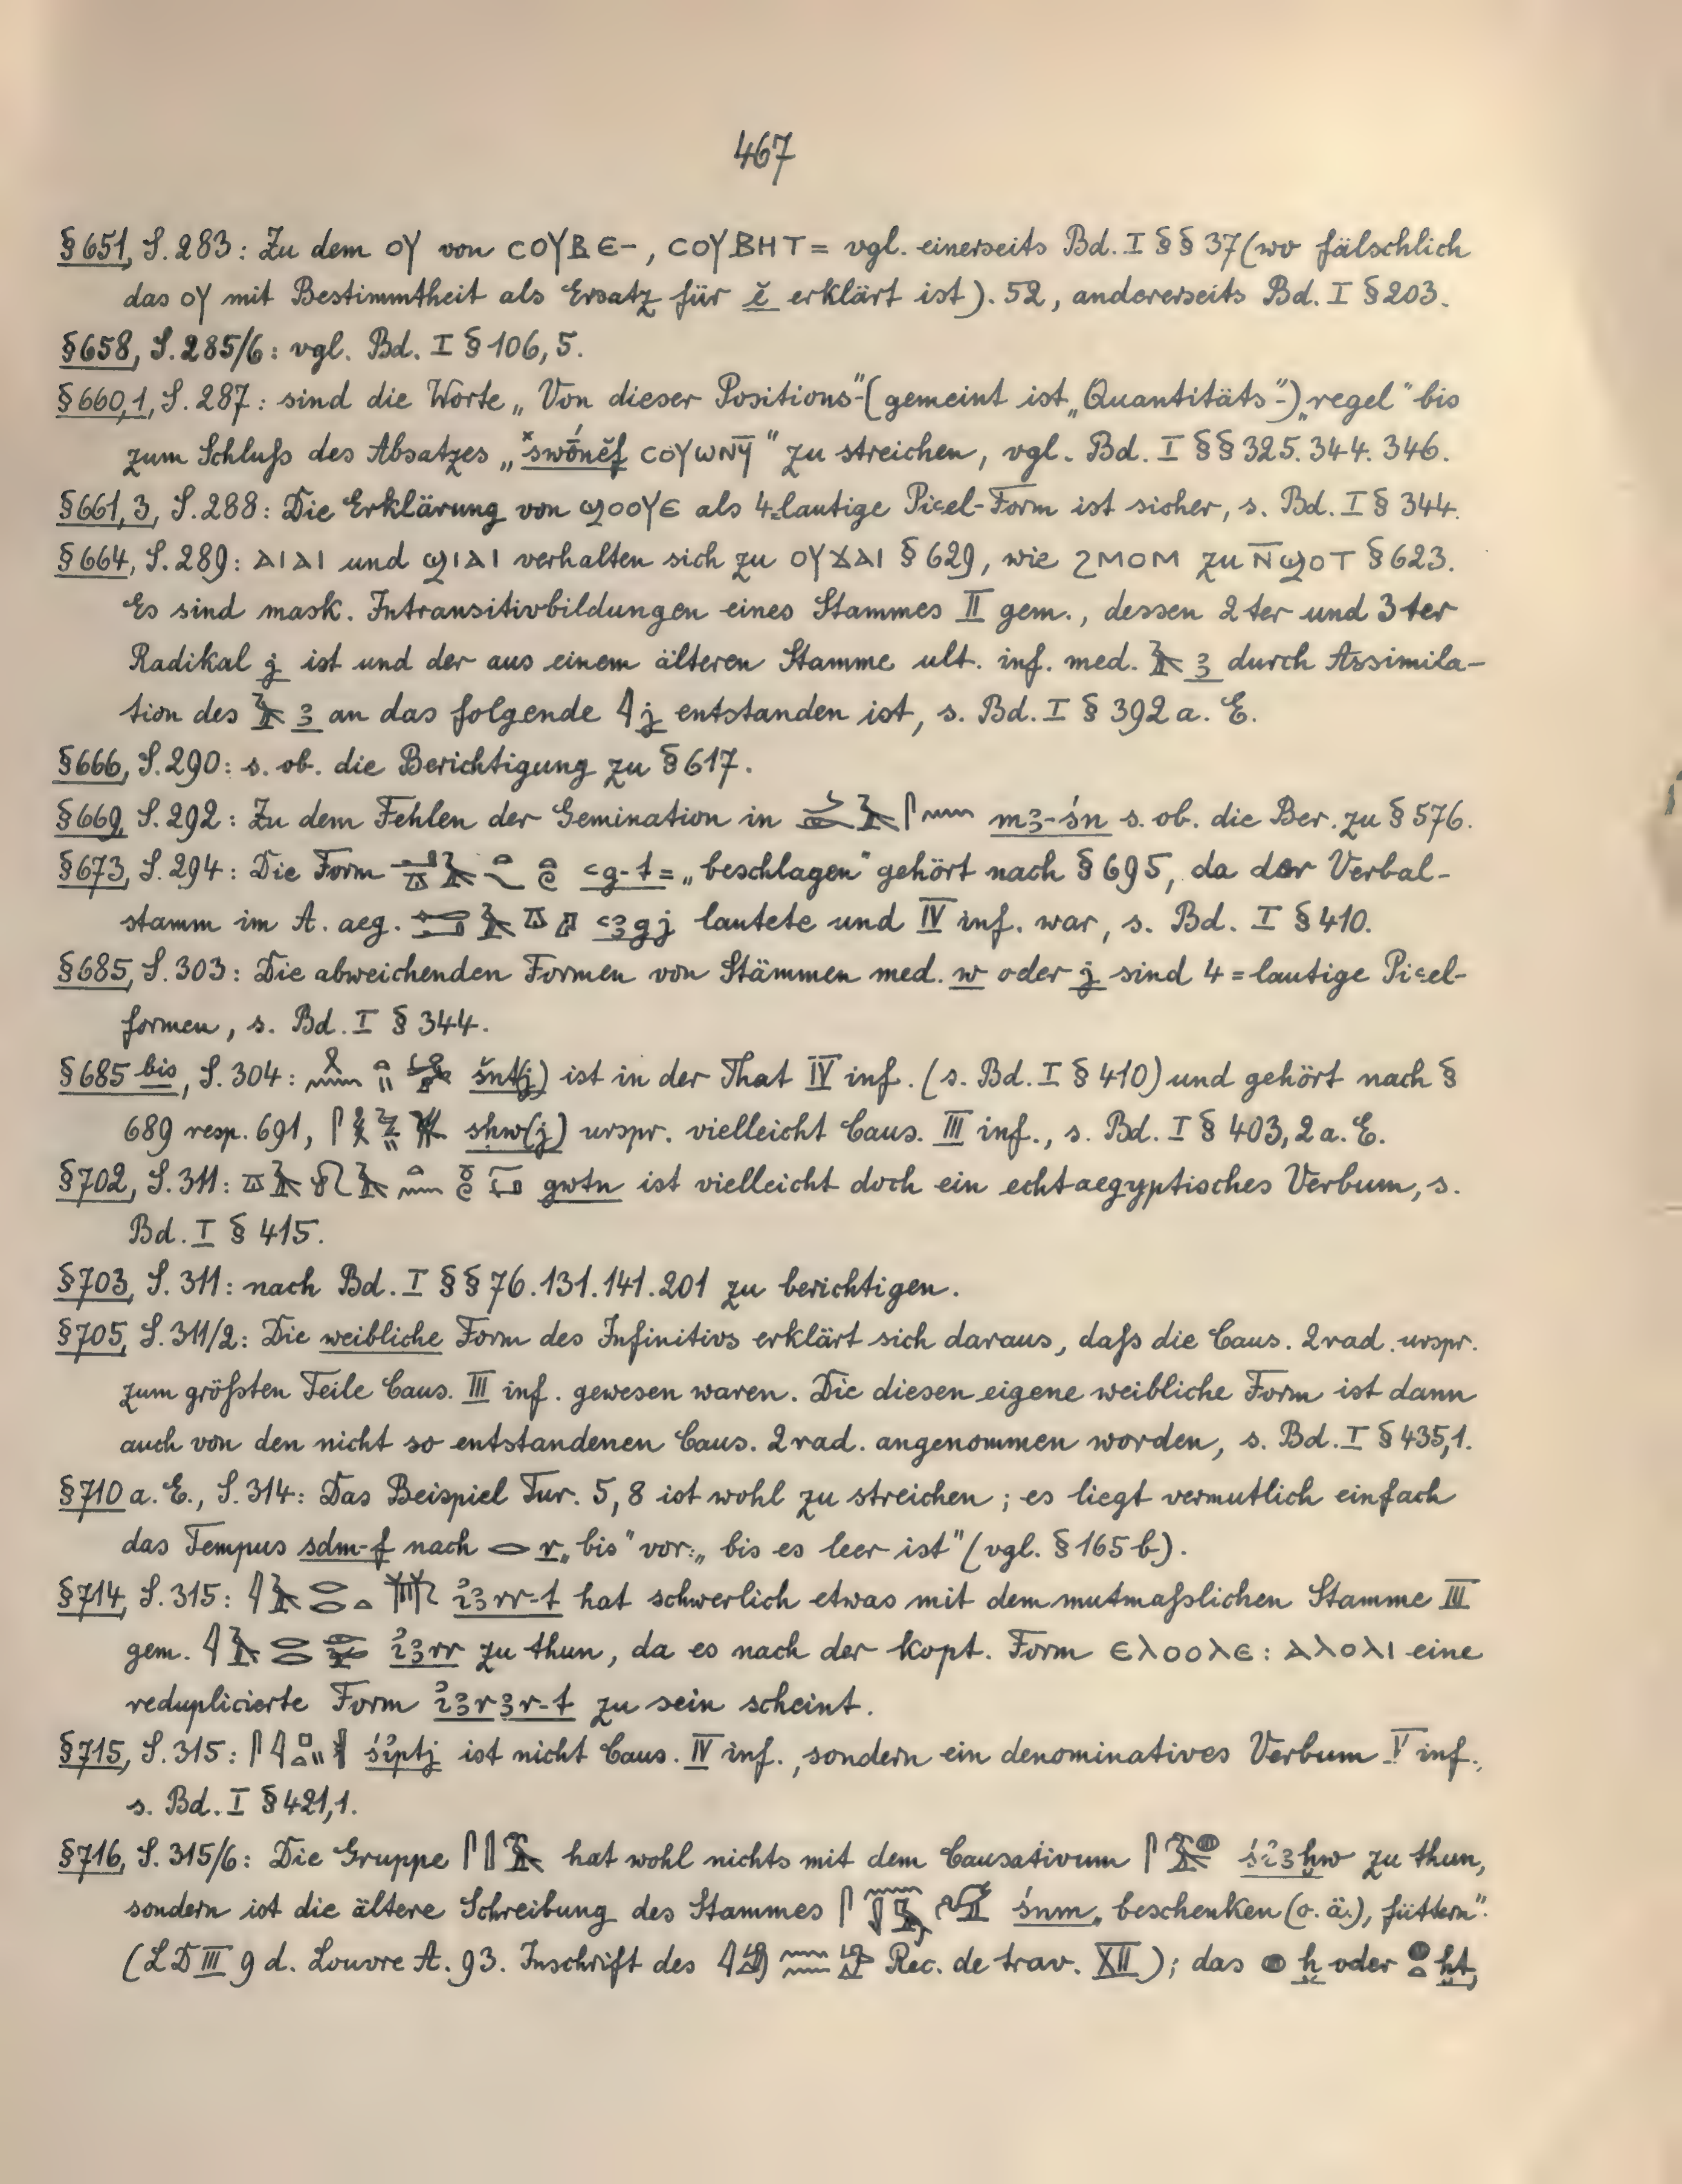 467
§ 651, S. 283: Zu dem ⲟⲩ von ⲥⲟⲩⲃⲉ-, ⲥⲟⲩⲃⲏⲧ= vgl. einerseits Bd. I §§ 37 (wo fälschlich
das ⲟⲩ mit Bestimmtheit als Ersatz für ĕ erklärt ist). 52, andererseits Bd. I § 203.
§ 658, S. 285/6: vgl. Bd. I § 106, 5.
§ 660,1, S. 287: sind die Worte „Von dieser Positions"-(gemeint ist „Quantitäts"-) „regel" bis
zum Schluß des Absatzes „*swōnĕf ⲥⲟⲩⲱⲛϥ̄" zu streichen, vgl. Bd. I §§ 325. 344. 346.
§ 661, 3, S. 288: Die Erklärung von ϣⲟⲟⲩⲉ als 4-lautige Piꜥel-Form ist sicher, s. Bd. I § 344.
§ 664, S. 289: ⲁⲓⲁⲓ und ϣⲓⲁⲓ verhalten sich zu ⲟⲩϫⲁⲓ § 629, wie ϩⲙⲟⲙ zu ⲛ̄ϣⲟⲧ § 623.
Es sind mask. Intransitivbildungen eines Stammes II gem., dessen 2ter und 3ter
Radikal j ist und der aus einem älteren Stamme ult. inf. med. 𓄿 ꜣ durch Assimila-
tion des 𓄿 ꜣ an das folgende 𓇋 j entstanden ist, s. Bd. I § 392 a. E.
§ 666, S. 290: s. ob. die Berichtigung zu § 617.
§ 669, S. 292: Zu dem Fehlen der Gemination in mꜣ-śn s. ob. die Ber. zu § 576.
§ 673, S. 294: Die Form ꜥg-t = „beschlagen" gehört nach § 695, da der Verbal-
stamm im A. aeg. ꜥꜣgj lautete und IV inf. war, s. Bd. I § 410.
§ 685, S. 303: Die abweichenden Formen von Stämmen med. w oder j sind 4=lautige Piꜥel-
formen, s. Bd. I § 344.
§ 685 bis, S. 304: šnt(j) ist in der That IV inf. (s. Bd. I § 410) und gehört nach §
689 resp. 691, sḥw(j) urspr. vielleicht Caus. III inf., s. Bd. I § 403, 2 a. E.
§ 702, S. 311: gwtn ist vielleicht doch ein echtaegyptisches Verbum, s.
Bd. I § 415.
§ 703, S. 311: nach Bd. I §§ 76. 131. 141. 201 zu berichtigen.
§ 705, S. 311/2: Die weibliche Form des Infinitivs erklärt sich daraus, daß die Caus. 2 rad. urspr.
zum größten Teile Caus. III inf. gewesen waren. Die diesen eigene weibliche Form ist dann
auch von den nicht so entstandenen Caus. 2 rad. angenommen worden, s. Bd. I § 435,1.
§ 710 a. E., S. 314: Das Beispiel Tur. 5, 8 ist wohl zu streichen; es liegt vermutlich einfach
das Tempus sdm-f nach 𓂋 r „bis" vor: „bis es leer ist" (vgl. § 165 b).
§ 714, S. 315: ỉꜣrr-t hat schwerlich etwas mit dem mutmaßlichen Stamme III
gem. ỉꜣrr zu thun, da es nach der kopt. Form ⲉⲗⲟⲟⲗⲉ: ⲁⲗⲟⲗⲓ eine
reduplicierte Form ỉꜣrꜣr-t zu sein scheint.
§ 715, S. 315: śỉptj ist nicht Caus. IV inf., sondern ein denominatives Verbum V inf.,
s. Bd. I § 421,1.
§ 716, S. 315/6: Die Gruppe hat wohl nichts mit dem Causativum śỉꜣḫw zu thun,
sondern ist die ältere Schreibung des Stammes śnm „beschenken (o. ä.), füttern".
(LD III 9 d. Louvre A. 93. Inschrift des Rec. de trav. XII); das 𓐍 ḫ oder ḫt,